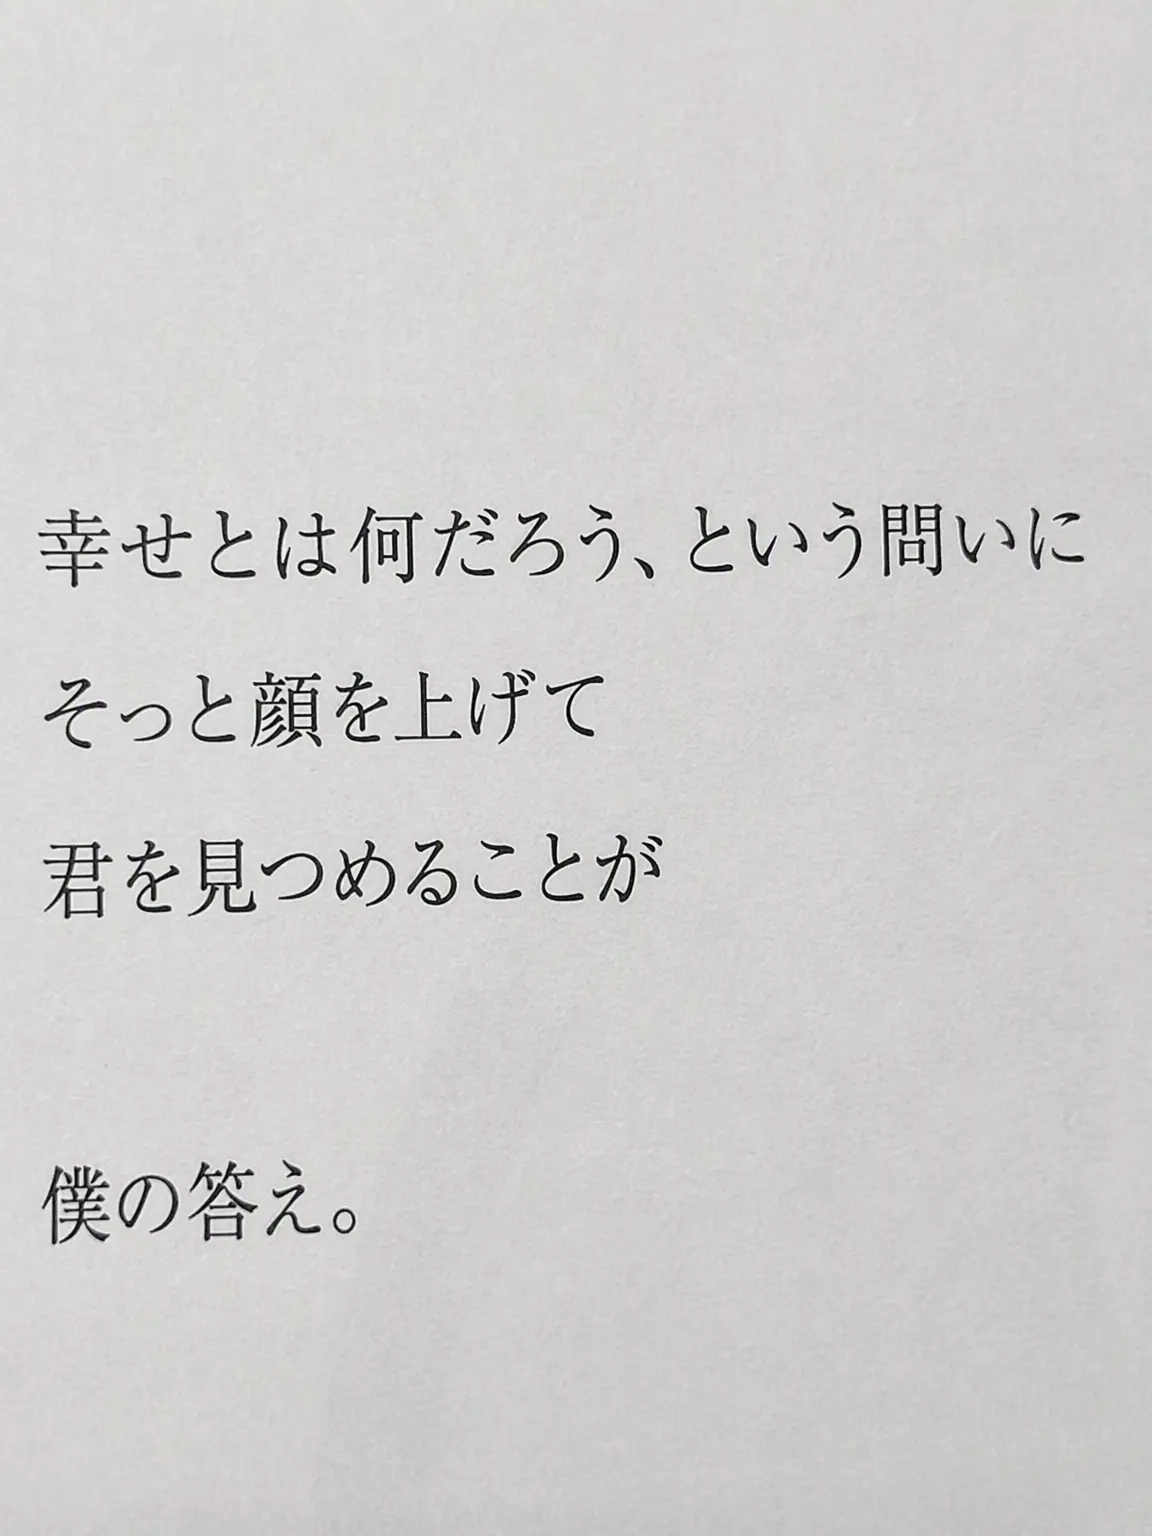 幸せとは何だろう、という問いに
そっと顔を上げて
君を見つめることが
僕の答え。